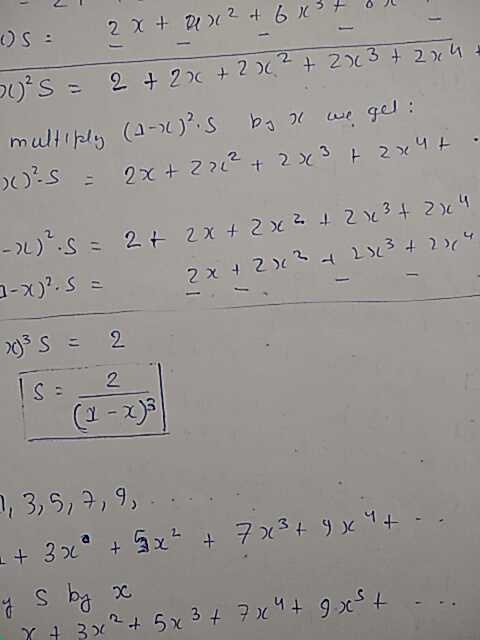 )S = 2x + 4x² + 6x³ +
x)² S = 2 + 2x + 2x² + 2x³ + 2x⁴ +
multiply (1-x)².S by x we get :
x)².S = 2x + 2x² + 2x³ + 2x⁴ + .
-x)².S = 2 + 2x + 2x² + 2x³ + 2x⁴
1-x)².S = 2x + 2x² + 2x³ + 2x⁴
x)³ S = 2
S = 2/(1-x)³
1, 3, 5, 7, 9, . . . . .
+ 3x + 5x² + 7x³ + 9x⁴ + ...
y S by x
x + 3x² + 5x³ + 7x⁴ + 9x⁵ + ....